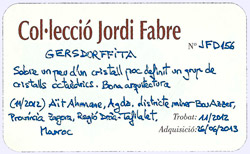 Col·lecció Jordi Fabre
Nº JFD156
GERSDORFFITA
Sobre un peu d'un cristall poc definit un grup de
cristalls octaèdrics. Bona arquitectura
(11/2012) Aït Ahmane, Agdz, districte miner Bou Azzer,
Província Zagora, Regió Drâa-Tafilalet,
Marroc
Trobat: 11/2012
Adquisició: 26/06/2013